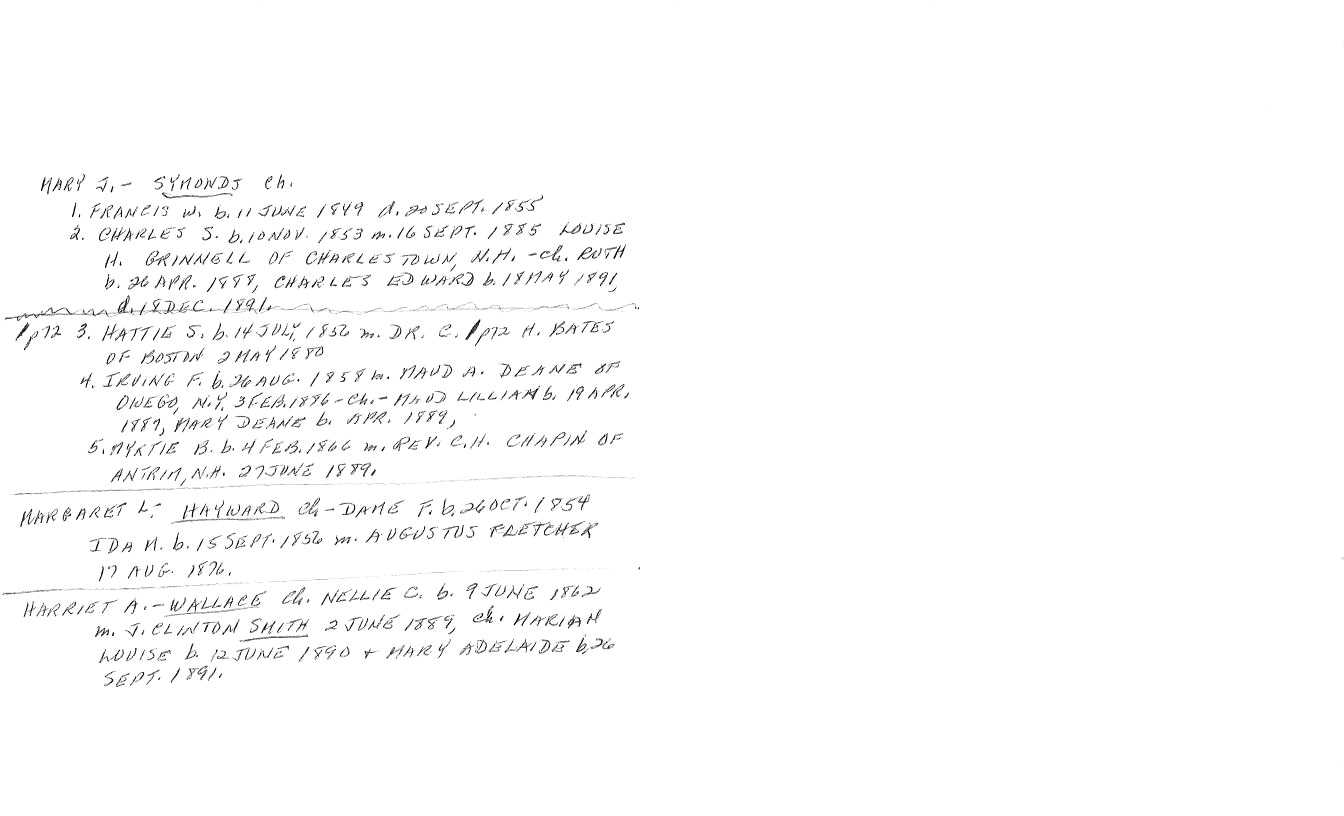 MARY J. - SYMONDS Ch.
1. FRANCIS W. b. 11 JUNE 1849 d. 20 SEPT. 1855
2. CHARLES S. b. 10 NOV. 1853 m. 16 SEPT. 1885 LOUISE
H. GRINNELL OF CHARLESTOWN, N.H. - ch. RUTH
b. 26 APR. 1888, CHARLES EDWARD b. 18 MAY 1891,
d. 18 DEC. 1891.
/p72 3. HATTIE S. b. 14 JULY, 1856 m. DR. C. /p72 H. BATES
OF BOSTON 2 MAY 1880
4. IRVING F. b. 26 AUG. 1858 m. MAUD A. DEANE OF
OWEGO, N.Y. 3 FEB. 1886 - Ch. - MAUD LILLIAN b. 19 APR.
1887, MARY DEANE b. APR. 1889,
5. MYRTIE B. b. 4 FEB. 1866 m. REV. C.H. CHAPIN OF
ANTRIM, N.H. 27 JUNE 1889.
MARGARET L. - HAYWARD Ch - DAME F. b. 26 OCT. 1854
IDA M. b. 15 SEPT. 1856 m. AUGUSTUS FLETCHER
17 AUG. 1876.
HARRIET A. - WALLACE Ch. NELLIE C. b. 9 JUNE 1862
m. J. CLINTON SMITH 2 JUNE 1889, ch. MARIAN
LOUISE b. 12 JUNE 1890 + MARY ADELAIDE b. 26
SEPT. 1891.